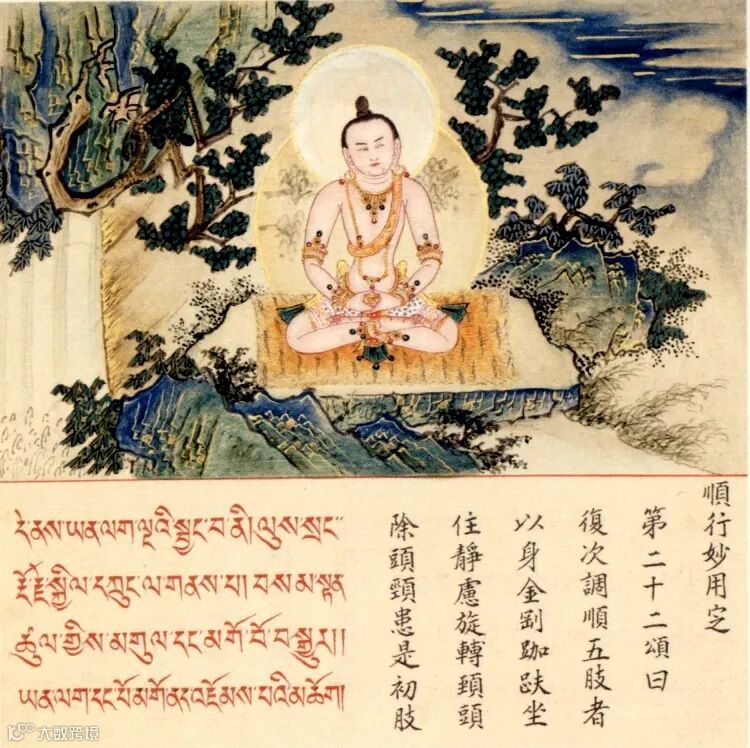 དེ་ནས་ཡན་ལག་ལྔའི་སྦྱང་བ་ནི། ལུས་སྲང་
རྡོ་རྗེ་སྐྱིལ་དཀྲུང་ལ་གནས་པ། བསམ་སྟན
ཚུལ་གྱིས་མགུལ་དང་མགོ་བོ་བསྒྱུར།།
ཡན་ལག་དང་པོ་མགོ་ནད་འཇོམས་པའི་མཆོག།
順行妙用定
第二十二頌曰
復次調順五肢者
以身金剛跏趺坐
住靜慮旋轉頸頭
除頭頸患是初肢
大数跨境